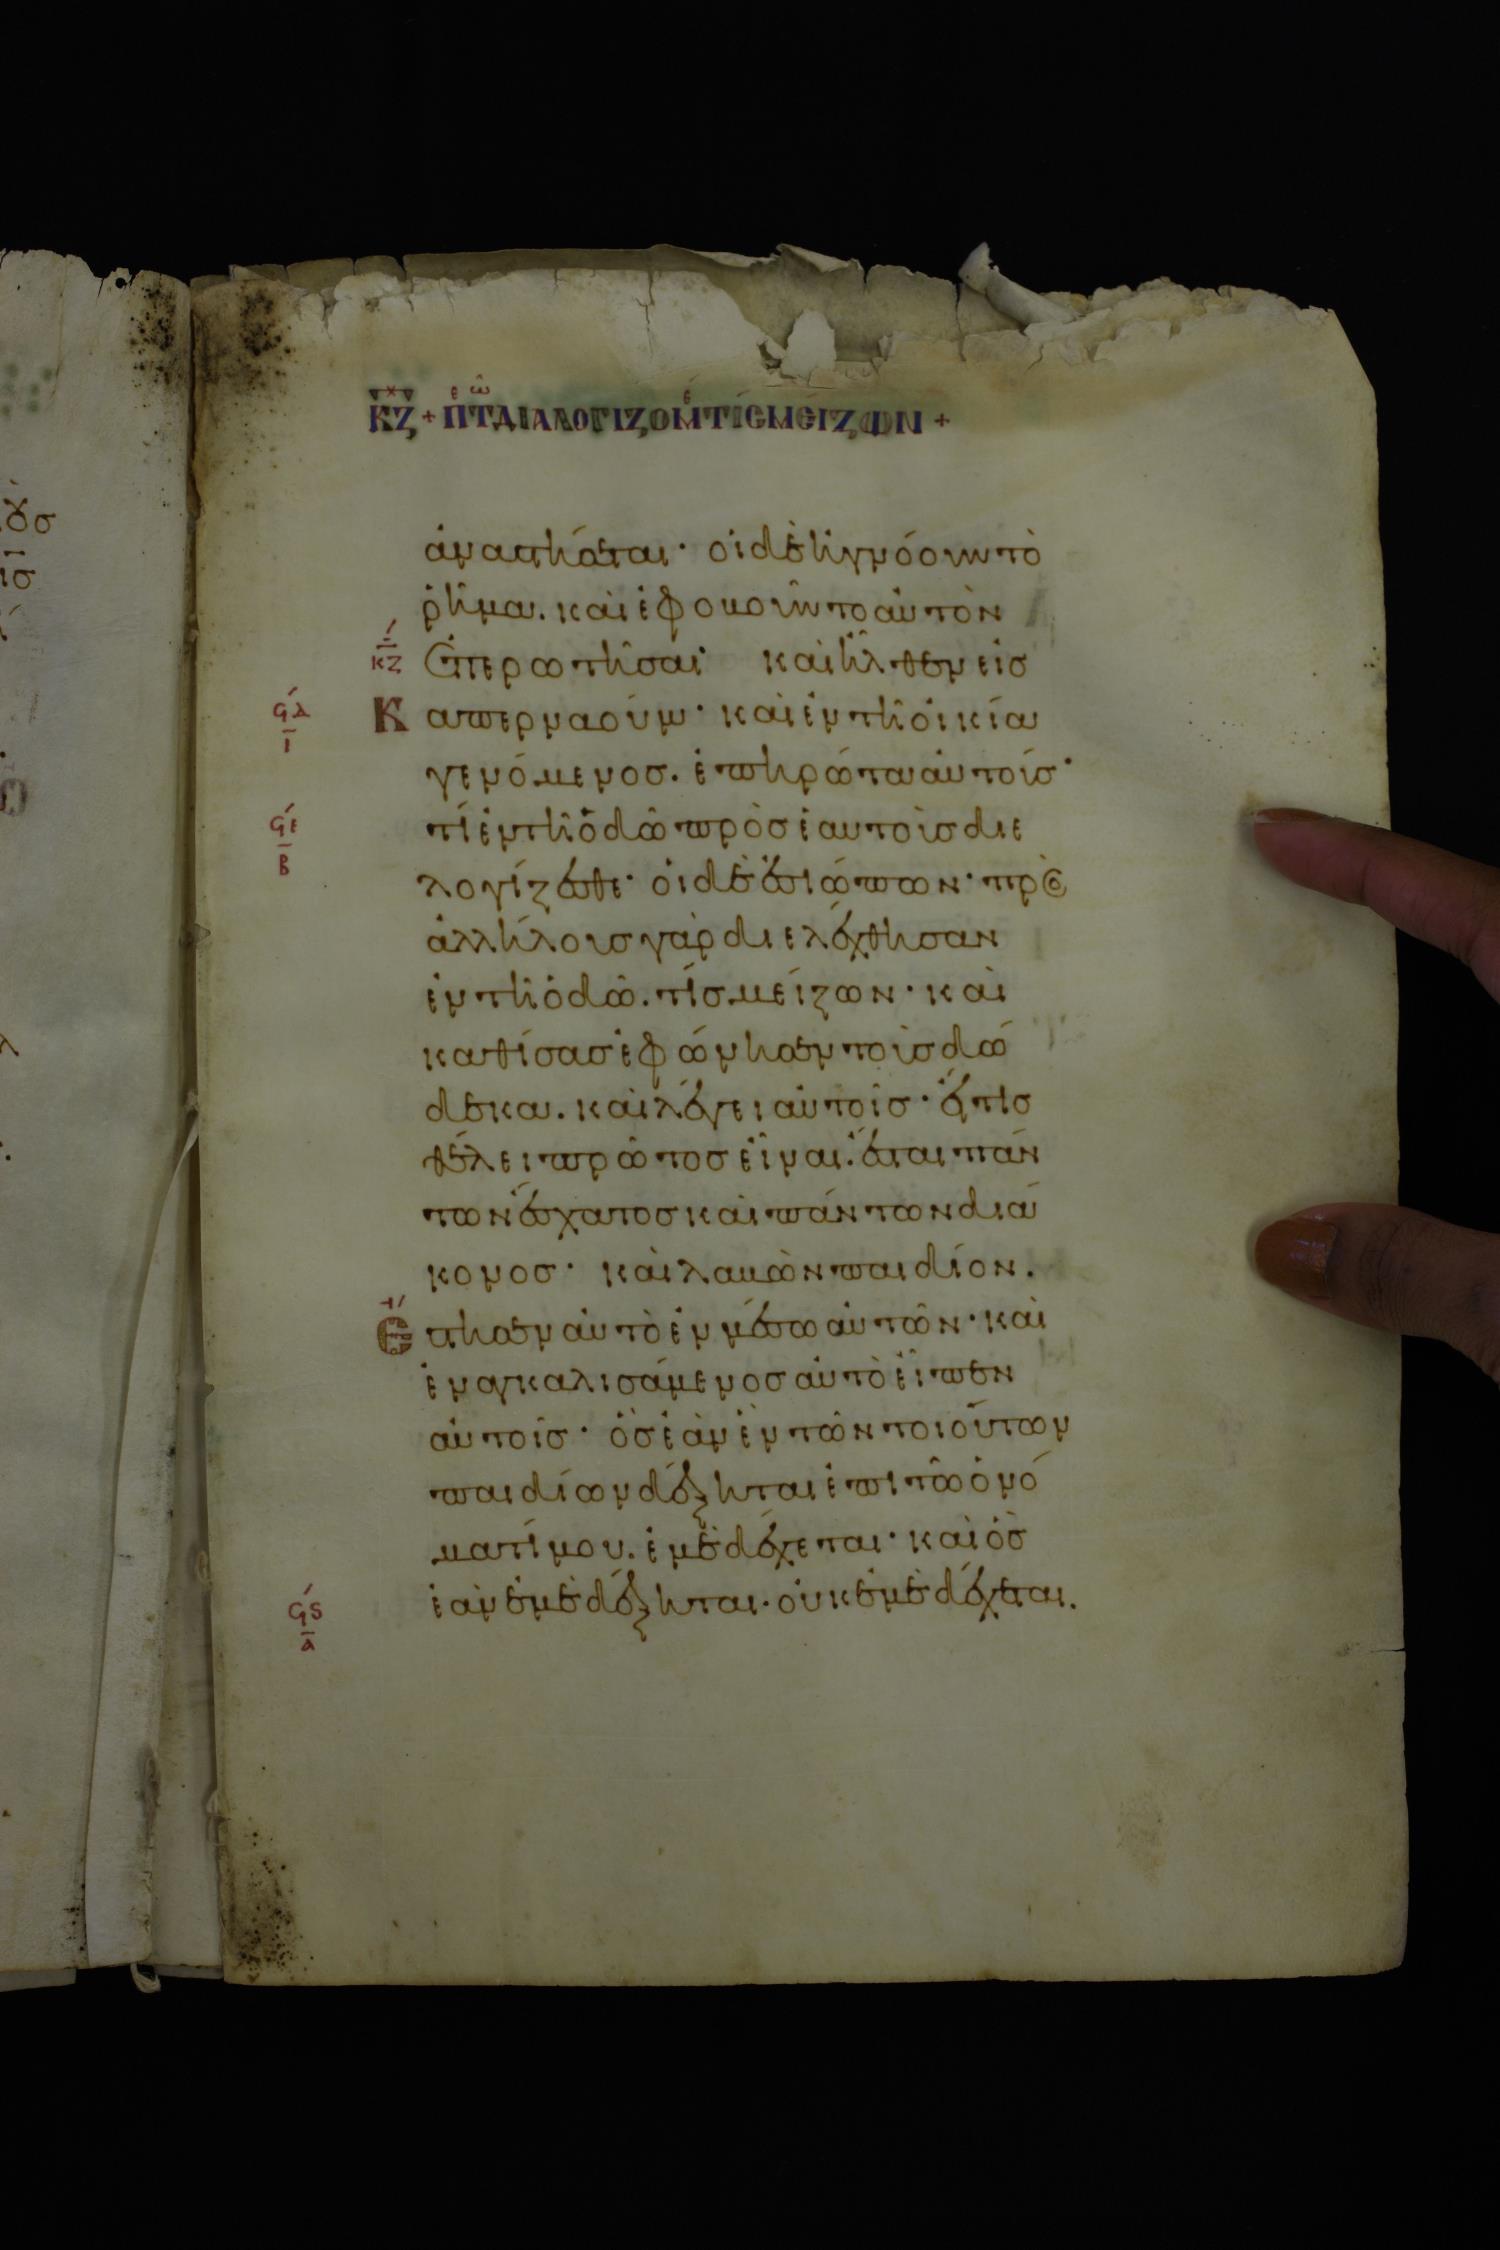 κζ + πε τῶ διαλογιζομέ τί ε μείζων +
ἀναστήσεται· οἱ δὲ ἠγνόουν τὸ
ῥῆμα. καὶ ἐφοβοῦντο αὐτὸν
κζ ἐπερωτῆσαι· καὶ ἦλθεν εἰσ
ϟδ ι Καπερναούμ· καὶ ἐν τῆ οἰκία
γενόμενοσ. ἐπηρώτα αὐτούσ·
ϟε β τί ἐν τῆ ὁδῶ πρὸσ ἑαυτοὺσ διε
λογίζεσθε· οἱ δὲ ἐσιώπων· πρὸσ
ἀλλήλουσ γὰρ διελέχθησαν
ἐν τῆ ὁδῶ. τίσ μείζων· καὶ
καθίσασ ἐφώνησεν τοὺσ δώ
δεκα. καὶ λέγει αὐτοῖσ· εἴ τισ
θέλει πρῶτοσ εἶναι. ἔσται πάν
των ἔσχατοσ καὶ πάντων διά
κονοσ· καὶ λαβὼν παιδίον.
Ἔστησεν αὐτὸ ἐν μέσω αὐτῶν· καὶ
ἐναγκαλισάμενοσ αὐτὸ εἶπεν
αὐτοῖσ· ὃσ ἐὰν ἓν τῶν τοιούτων
παιδίων δέξηται ἐπὶ τῶ ὀνό
ματί μου. ἐμὲ δέχεται· καὶ ὃσ
ϟϛ α ἐὰν ἐμὲ δέξηται. οὐκ ἐμὲ δέχεται.